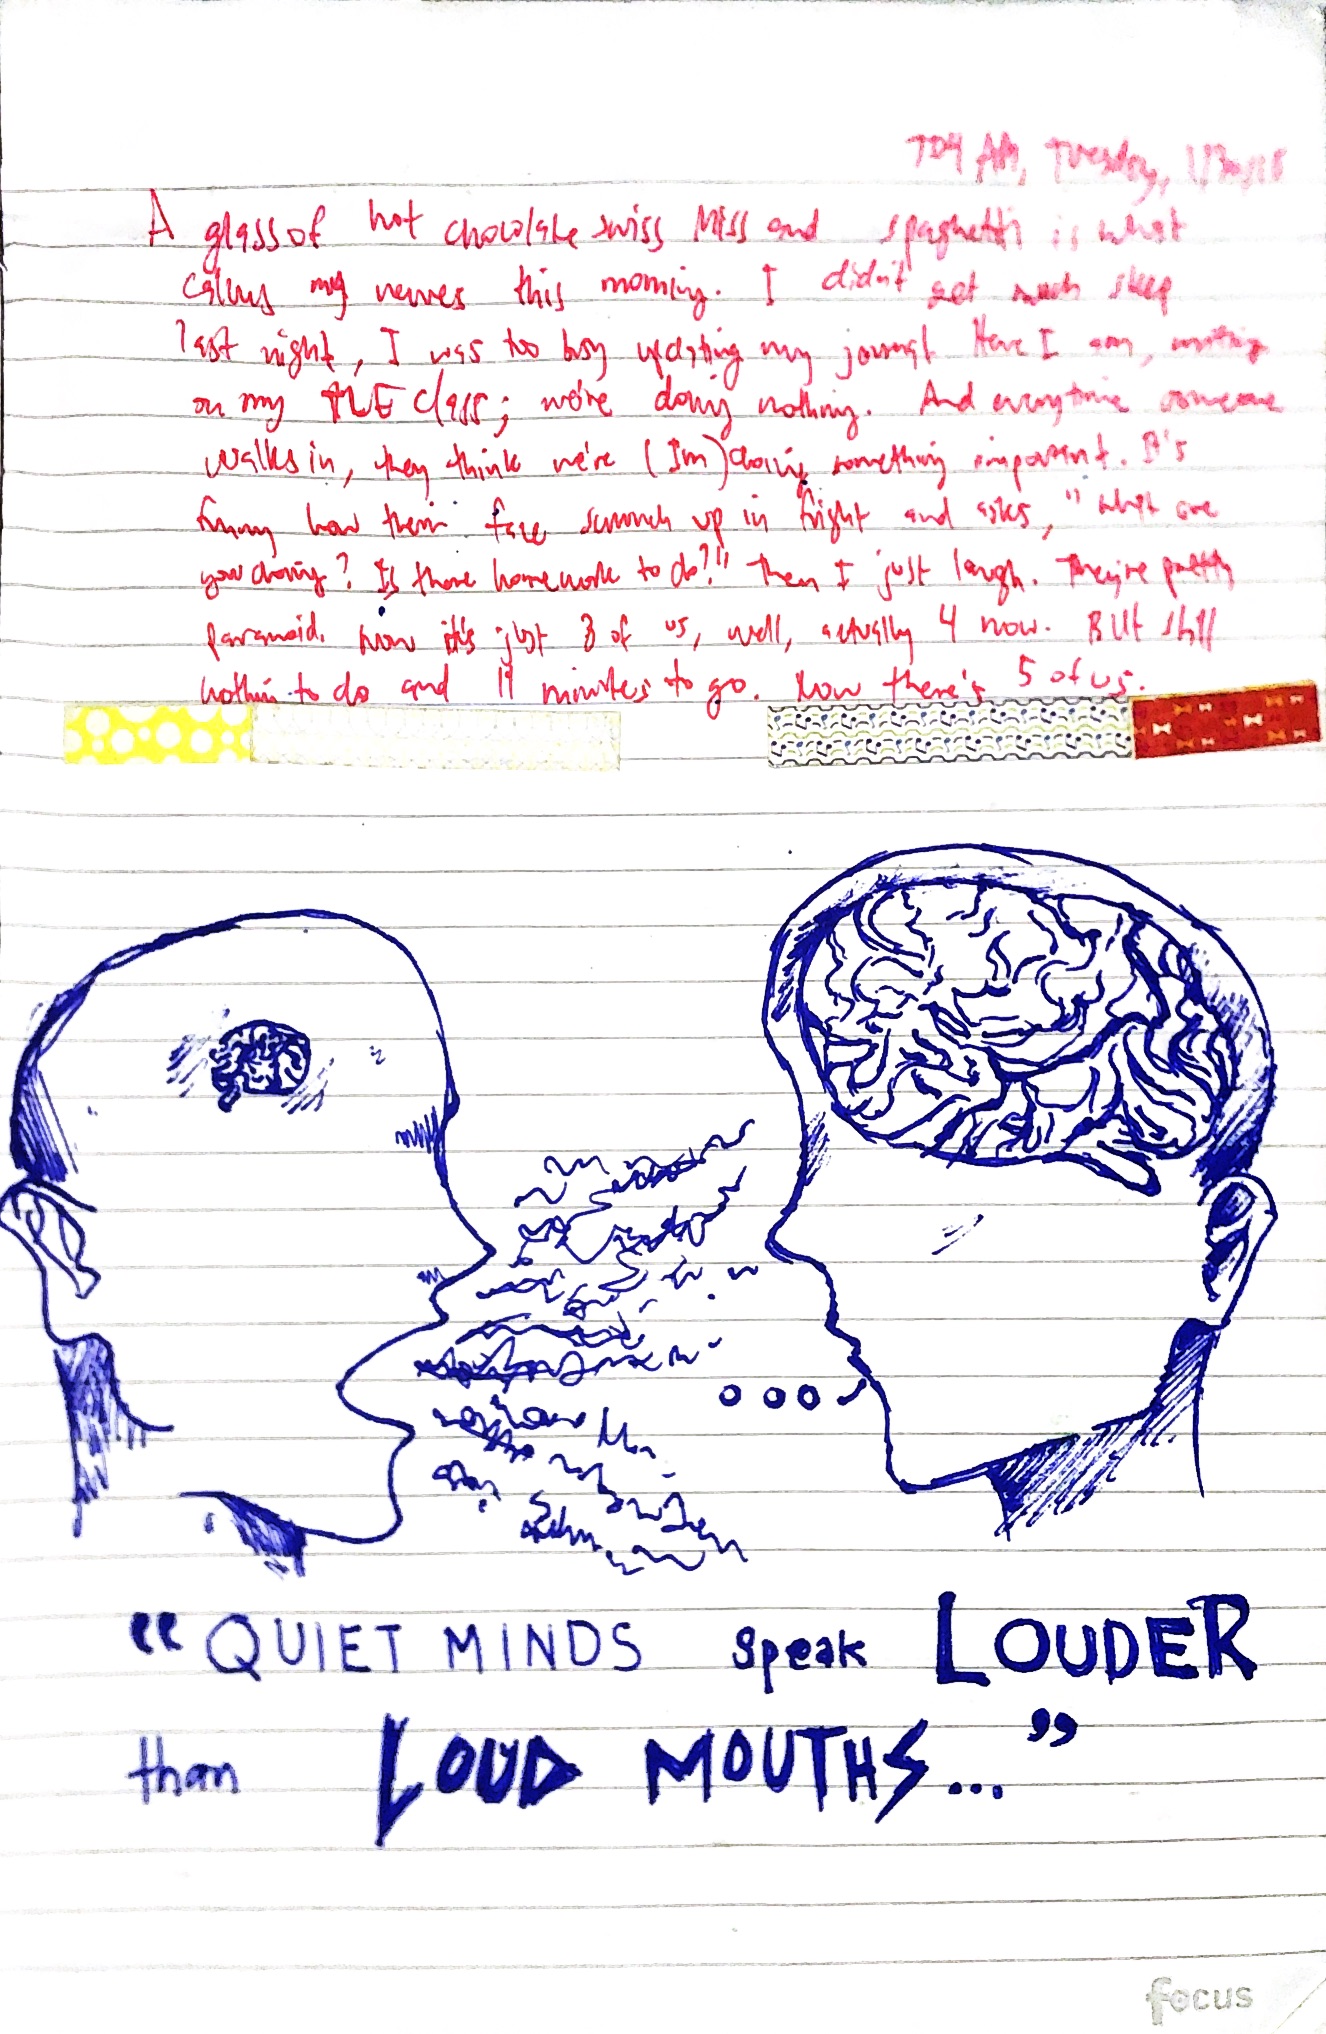 704 AM, Tuesday, 1/30/18
A glass of hot chocolate swiss Miss and spaghetti is what
calms my nerves this morning. I didn't get much sleep
last night, I was too busy updating my journal. Here I am, writing
on my TLE class; we're doing nothing. And everytime someone
walks in, they think we're (I'm) doing something important. It's
funny how their face scrunch up in fright and asks, "what are
you doing? Is there homework to do?!" Then I just laugh. They're pretty
paranoid. Now it's just 3 of us, well, actually 4 now. BUt still
nothin to do and 11 minutes to go. Now there's 5 of us.
"QUIET MINDS speak LOUDER
than LOUD MOUTHS..."
focus